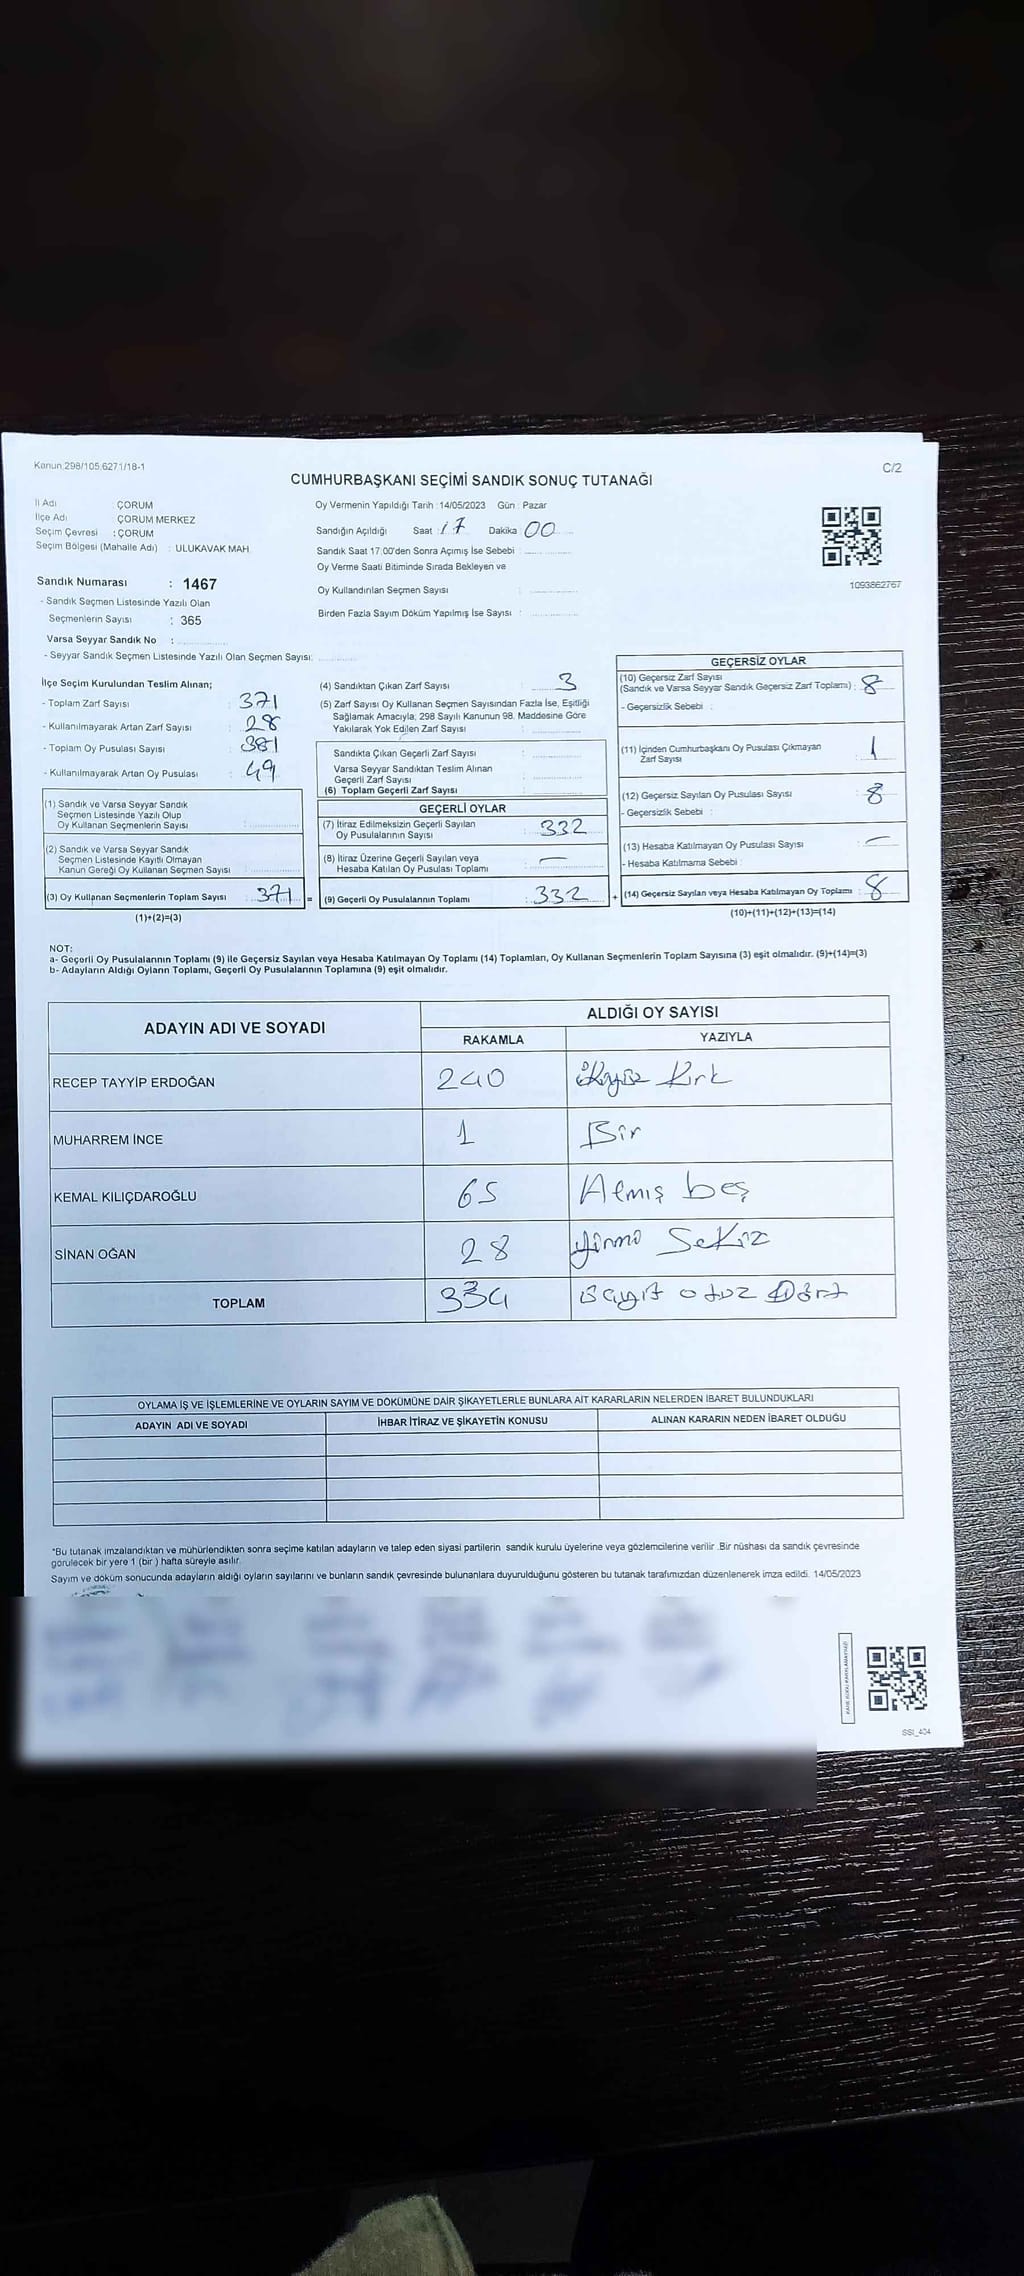 Kanun 298/105,6271/18-1
C/2
CUMHURBAŞKANI SEÇİMİ SANDIK SONUÇ TUTANAĞI
İl Adı : ÇORUM
İlçe Adı : ÇORUM MERKEZ
Seçim Çevresi : ÇORUM
Seçim Bölgesi (Mahalle Adı) : ULUKAVAK MAH.
Sandık Numarası : 1467
- Sandık Seçmen Listesinde Yazılı Olan
Seçmenlerin Sayısı : 365
Varsa Seyyar Sandık No :
- Seyyar Sandık Seçmen Listesinde Yazılı Olan Seçmen Sayısı:
Oy Vermenin Yapıldığı Tarih :14/05/2023 Gün : Pazar
Sandığın Açıldığı Saat : 17 Dakika 00
Sandık Saat 17.00'den Sonra Açımış İse Sebebi :
Oy Verme Saati Bitiminde Sırada Bekleyen ve
Oy Kullandırılan Seçmen Sayısı :
Birden Fazla Sayım Döküm Yapılmış İse Sayısı :
1093862767
İlçe Seçim Kurulundan Teslim Alınan;
- Toplam Zarf Sayısı : 371
- Kullanılmayarak Artan Zarf Sayısı : 28
- Toplam Oy Pusulası Sayısı : 381
- Kullanılmayarak Artan Oy Pusulası : 49
(1) Sandık ve Varsa Seyyar Sandık
Seçmen Listesinde Yazılı Olup
Oy Kullanan Seçmenlerin Sayısı :
(2) Sandık ve Varsa Seyyar Sandık
Seçmen Listesinde Kayıtlı Olmayan
Kanun Gereği Oy Kullanan Seçmen Sayısı :
(3) Oy Kullanan Seçmenlerin Toplam Sayısı : 371 =
(1)+(2)=(3)
(4) Sandıktan Çıkan Zarf Sayısı : 3
(5) Zarf Sayısı Oy Kullanan Seçmen Sayısından Fazla İse, Eşitliği
Sağlamak Amacıyla, 298 Sayılı Kanunun 98. Maddesine Göre
Yakılarak Yok Edilen Zarf Sayısı :
Sandıkta Çıkan Geçerli Zarf Sayısı :
Varsa Seyyar Sandıktan Teslim Alınan
Geçerli Zarf Sayısı :
(6) Toplam Geçerli Zarf Sayısı :
GEÇERLİ OYLAR
(7) İtiraz Edilmeksizin Geçerli Sayılan
Oy Pusulalarının Sayısı : 332
(8) İtiraz Üzerine Geçerli Sayılan veya
Hesaba Katılan Oy Pusulası Toplamı : —
(9) Geçerli Oy Pusulalarının Toplamı : 332 +
GEÇERSİZ OYLAR
(10) Geçersiz Zarf Sayısı
(Sandık ve Varsa Seyyar Sandık Geçersiz Zarf Toplamı) : 8
- Geçersizlik Sebebi :
(11) İçinden Cumhurbaşkanı Oy Pusulası Çıkmayan
Zarf Sayısı : 1
(12) Geçersiz Sayılan Oy Pusulası Sayısı : 8
- Geçersizlik Sebebi :
(13) Hesaba Katılmayan Oy Pusulası Sayısı : —
- Hesaba Katılmama Sebebi :
(14) Geçersiz Sayılan veya Hesaba Katılmayan Oy Toplamı : 8
(10)+(11)+(12)+(13)=(14)
NOT:
a- Geçerli Oy Pusulalarının Toplamı (9) ile Geçersiz Sayılan veya Hesaba Katılmayan Oy Toplamı (14) Toplamları, Oy Kullanan Seçmenlerin Toplam Sayısına (3) eşit olmalıdır. (9)+(14)=(3)
b- Adayların Aldığı Oyların Toplamı, Geçerli Oy Pusulalarının Toplamına (9) eşit olmalıdır.
ADAYIN ADI VE SOYADI
ALDIĞI OY SAYISI
RAKAMLA YAZIYLA
RECEP TAYYİP ERDOĞAN 240 ikiyüz Kırk
MUHARREM İNCE 1 Bir
KEMAL KILIÇDAROĞLU 65 Atmış beş
SİNAN OĞAN 28 yirmi Sekiz
TOPLAM 334 otuz Dört
OYLAMA İŞ VE İŞLEMLERİNE VE OYLARIN SAYIM VE DÖKÜMÜNE DAİR ŞİKAYETLERLE BUNLARA AİT KARARLARIN NELERDEN İBARET BULUNDUKLARI
ADAYIN ADI VE SOYADI İHBAR İTİRAZ VE ŞİKAYETİN KONUSU ALINAN KARARIN NEDEN İBARET OLDUĞU
*Bu tutanak imzalandıktan ve mühürlendikten sonra seçime katılan adayların ve talep eden siyasi partilerin sandık kurulu üyelerine veya gözlemcilerine verilir .Bir nüshası da sandık çevresinde
görülecek bir yere 1 (bir ) hafta süreyle asılır.
Sayım ve döküm sonucunda adayların aldığı oyların sayılarını ve bunların sandık çevresinde bulunanlara duyurulduğunu gösteren bu tutanak tarafımızdan düzenlenerek imza edildi. 14/05/2023
SSI_404